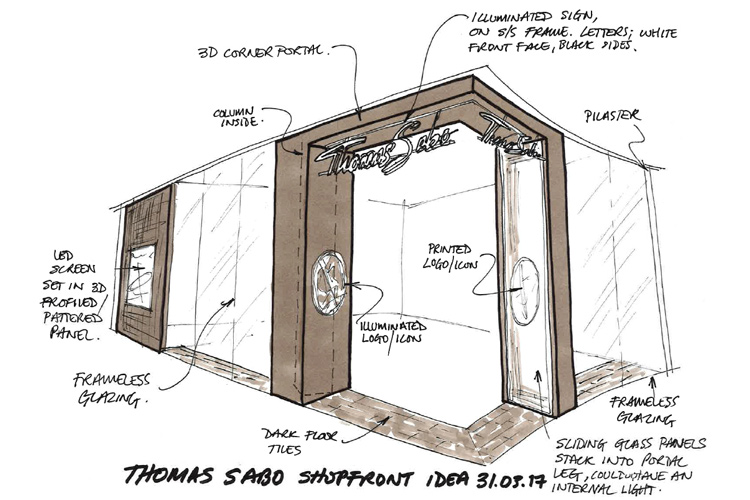 ILLUMINATED SIGN,
ON S/S FRAME. LETTERS; WHITE
FRONT FACE, BLACK SIDES.
3D CORNER PORTAL.
COLUMN
INSIDE.
PILASTER
Thomas Sabo
Thomas Sabo
LED
SCREEN
SET IN 3D
PROFILED/
PATTERED
PANEL.
PRINTED
LOGO/ICON
ILLUMINATED
LOGO/ICON
FRAMELESS
GLAZING.
FRAMELESS
GLAZING
DARK FLOOR
TILES
SLIDING GLASS PANELS
STACK INTO PORTAL
LEG, COULD HAVE AN
INTERNAL LIGHT.
THOMAS SABO SHOPFRONT IDEA 31.03.17